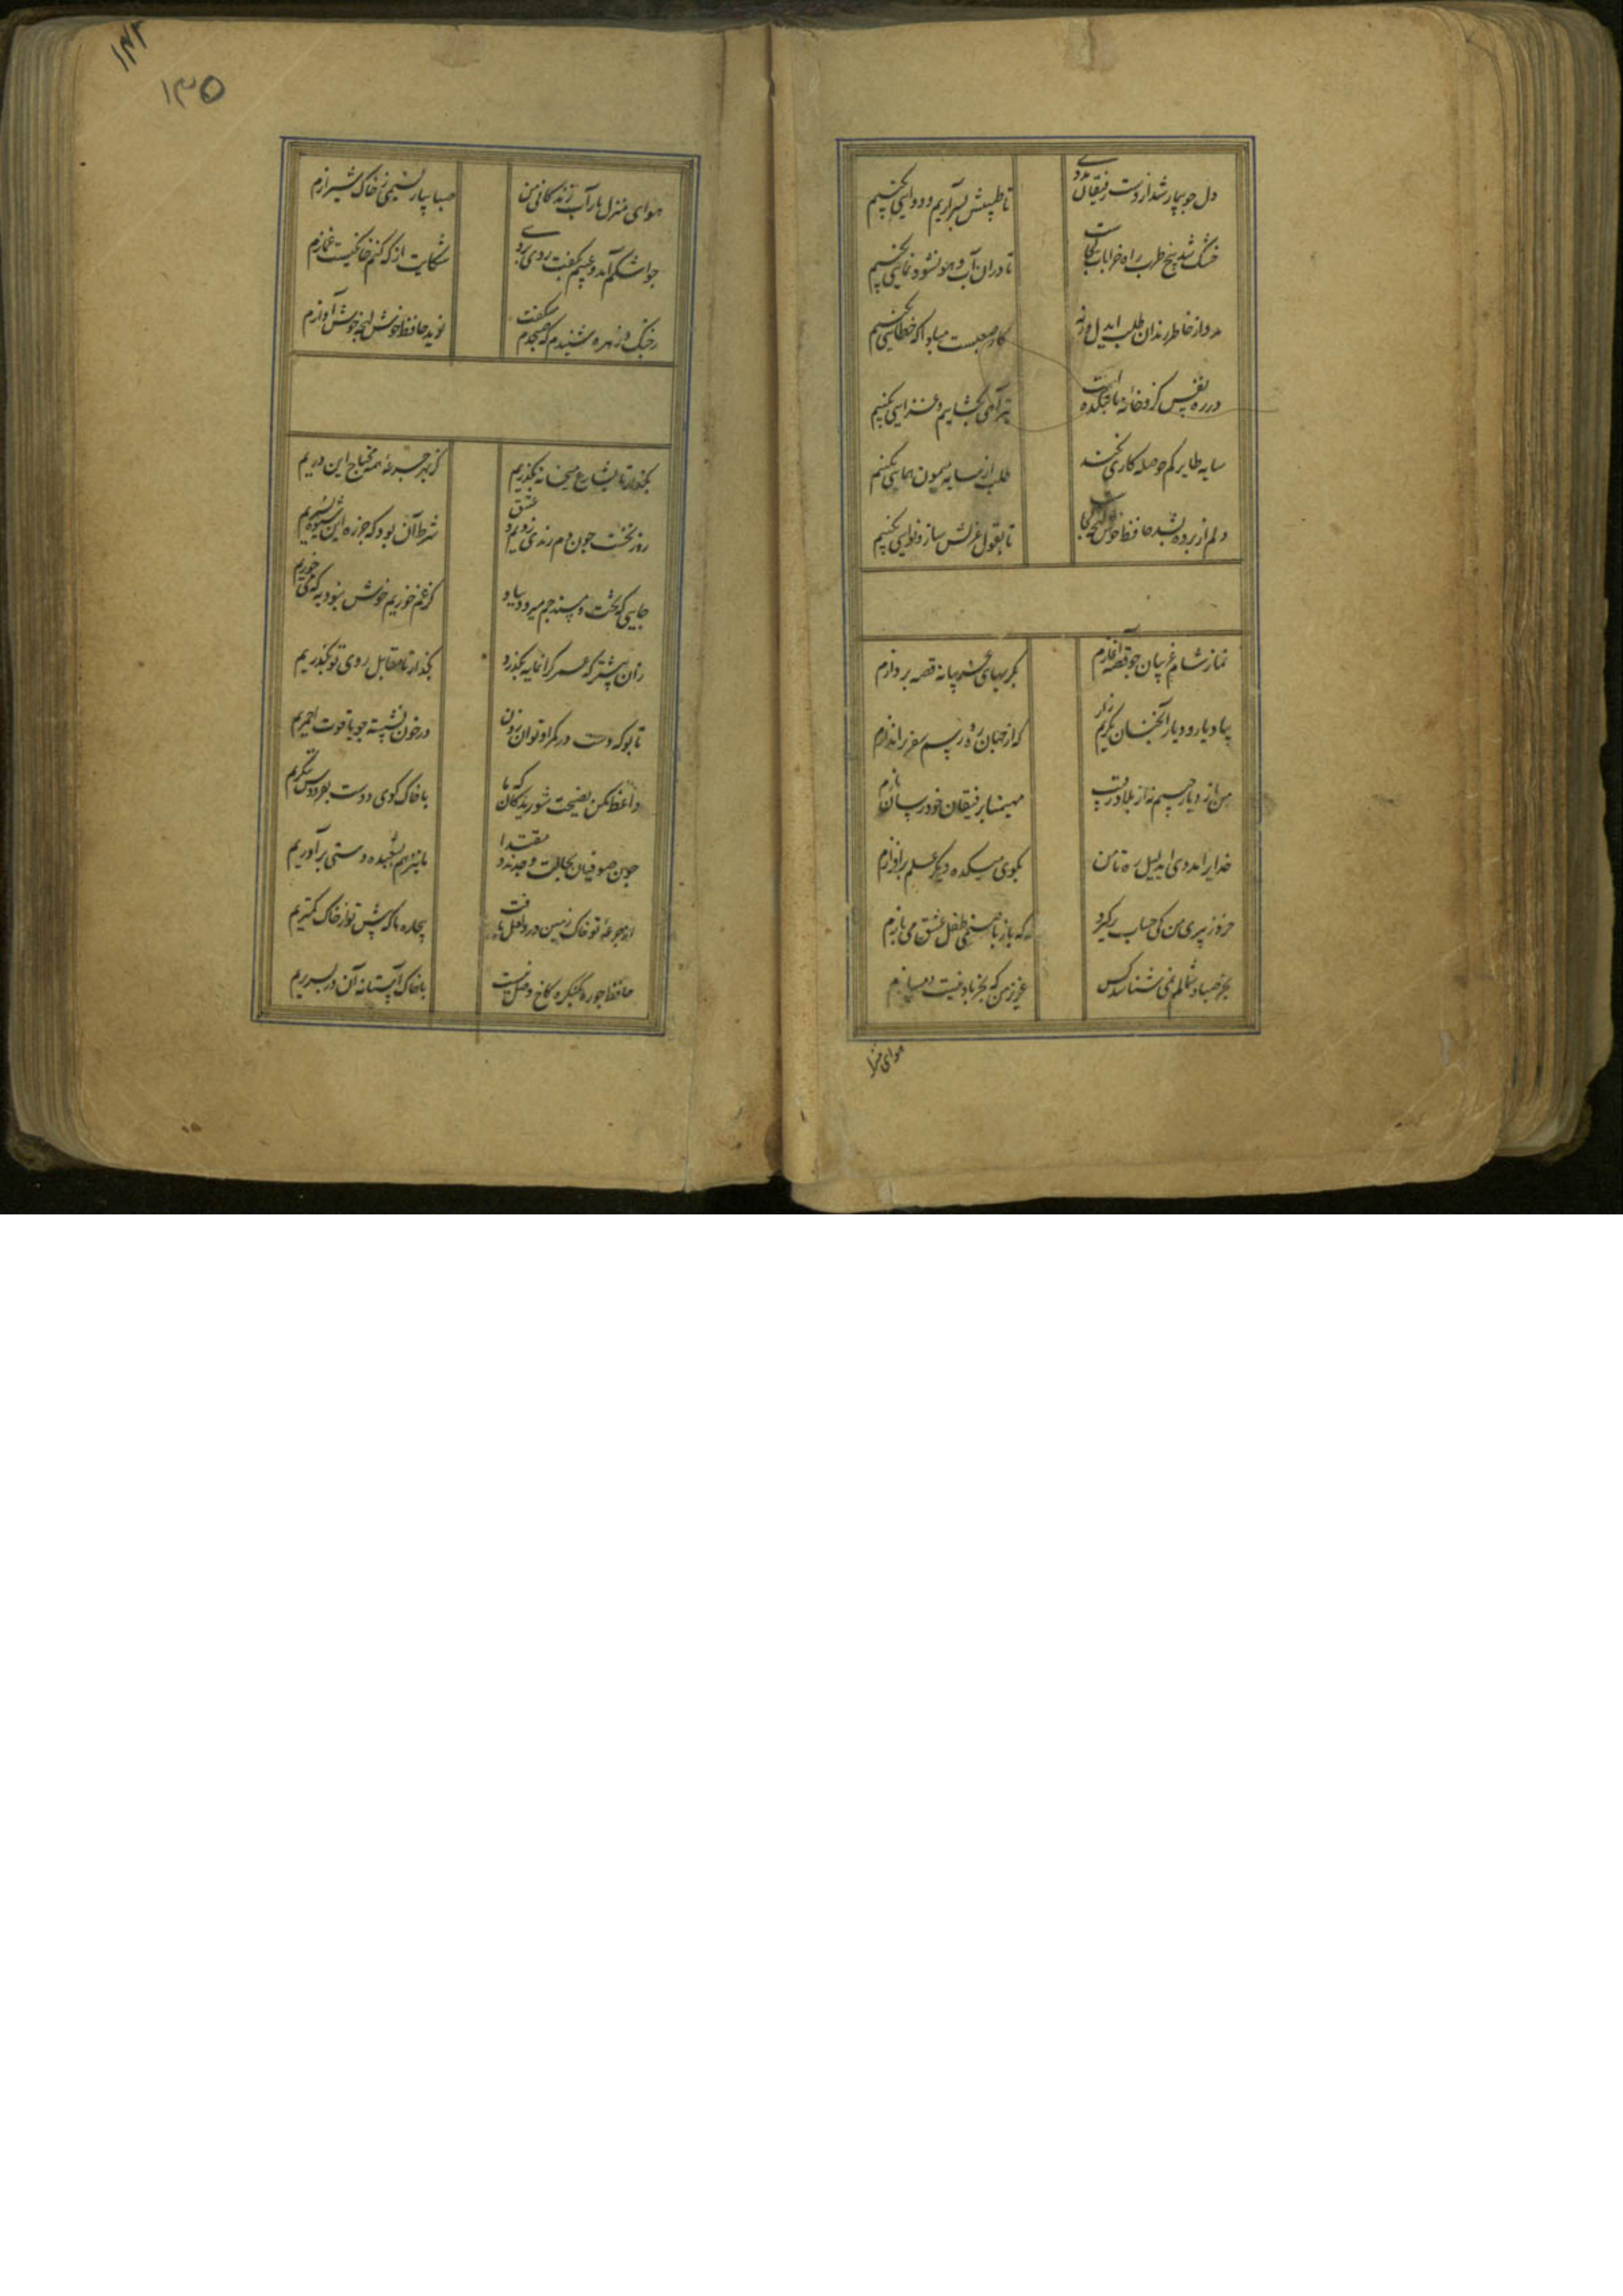 دل جو بیمار شد از دست رفیقان مددی
تا طبیبش بسر آریم و دوایی بکنیم
خشک شد بیخ طرب راه خرابات کجاست
تا در ان آب و هوا نشو و نمایی بکنیم
مدد از خاطر رندان طلب ایدل ورنه
کار صعبست مبادا که خطایی بکنیم
در ره نفس کزو خانهٔ ما بتکده است
تیر آهی بکشاییم و غزایی بکنیم
سایه طایر کم حوصله کاری نکند
طلب از سایه میمون همایی بکنیم
دلم از پرده بشد حافظ خوش لهجه کجاست
تا بقول غزلش ساز و نوایی بکنیم
نماز شام غریبان جو قصه آغازم
بکریهای غریبانه قصه پردازم
بیاد یار و دیار آنچنان بکریم زار
که از جهان ره و رسم سفر براندازم
من از دیار حبیبم نه از بلاد رقیب
مهیمنا برفیقان خود رسان بازم
خدایرا مددی ایدلیل ره تا من
بکوی میکده دیکر علم برافرازم
خرد ز پیری من کی حساب برکیرد
که باز با صنمی طفل عشق می بازم
بجز صبا و شمالم نمی شناسد کس
عزیز من که بجز باد نیست دمسازم
هوای منزل
۱۴۳
۱۳۵
هوای منزل یار آب زندکانی من
صبا بیار نسیمی ز خاک شیرازم
جو اشکم آمد و عیبم بکفت روی بروی
شکایت از که کنم خانکیست غمازم
ز جنک زهره شنیدم که صبحدم میکفت
نوید حافظ خوش لهجه خوش آوازم
بکذار تا بشارع میخانه بکذریم
کز بهر جرعهٔ همه محتاج این دریم
روز نخست جون دم رندی زدیم و عشق
شرط آن بود که جز ره این شیوه نسپریم
جایی که تخت و مسند جم میرود بباد
کر غم خوریم خوش نبود به که می خوریم
زان پیشتر که عمر کرانمایه بکذرد
بکذار تا مقابل روی تو بکذریم
تا بو که دست در کمر او توان زدن
در خون نشسته جو یاقوت احمریم
واعظ مکن نصیحت شوریدکان که ما
با خاک کوی دوست بفردوس ننکریم
جون صوفیان بحالت و جدند مقتدا
ما نیز هم بشعبده دستی برآوریم
از جرعهٔ تو خاک زمین در و لعل یافت
بیچاره ما که پیش تو از خاک کمتریم
حافظ جو ره بکنکره کاخ وصل نیست
با خاک آستانه آن در بسر بریم